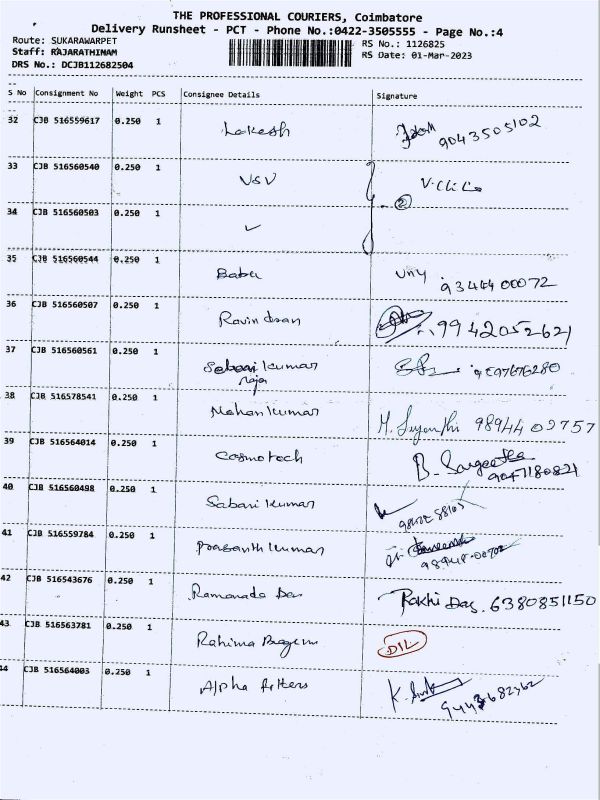 THE PROFESSIONAL COURIERS, Coimbatore
Delivery Runsheet - PCT - Phone No.:0422-3505555 - Page No.:4
Route: SUKARAWARPET RS No.: 1126825
Staff: RAJARATHINAM RS Date: 01-Mar-2023
DRS No.: DCJB112682504
S No Consignment No Weight PCS Consignee Details Signature
32 CJB 516559617 0.250 1 Lokesh 9043505102
33 CJB 516560540 0.250 1 VSV
2
34 CJB 516560503 0.250 1
35 CJB 516560544 0.250 1 Babu 9344400072
36 CJB 516560507 0.250 1 Ravindran 9942052621
37 CJB 516560561 0.250 1 Sabari Kumar
raja
38 CJB 516578541 0.250 1 Mohan Kumar 98944 02757
39 CJB 516564014 0.250 1 Cosmotech B. Sangeetha
9047180821
40 CJB 516560498 0.250 1 Sabari Kumar
41 CJB 516559784 0.250 1 Prasanth Kumar
42 CJB 516543676 0.250 1 Ramanada Das Rakhi Das. 6380851150
43 CJB 516563781 0.250 1 Rahima Begum DIL
44 CJB 516564003 0.250 1 Alpha filters